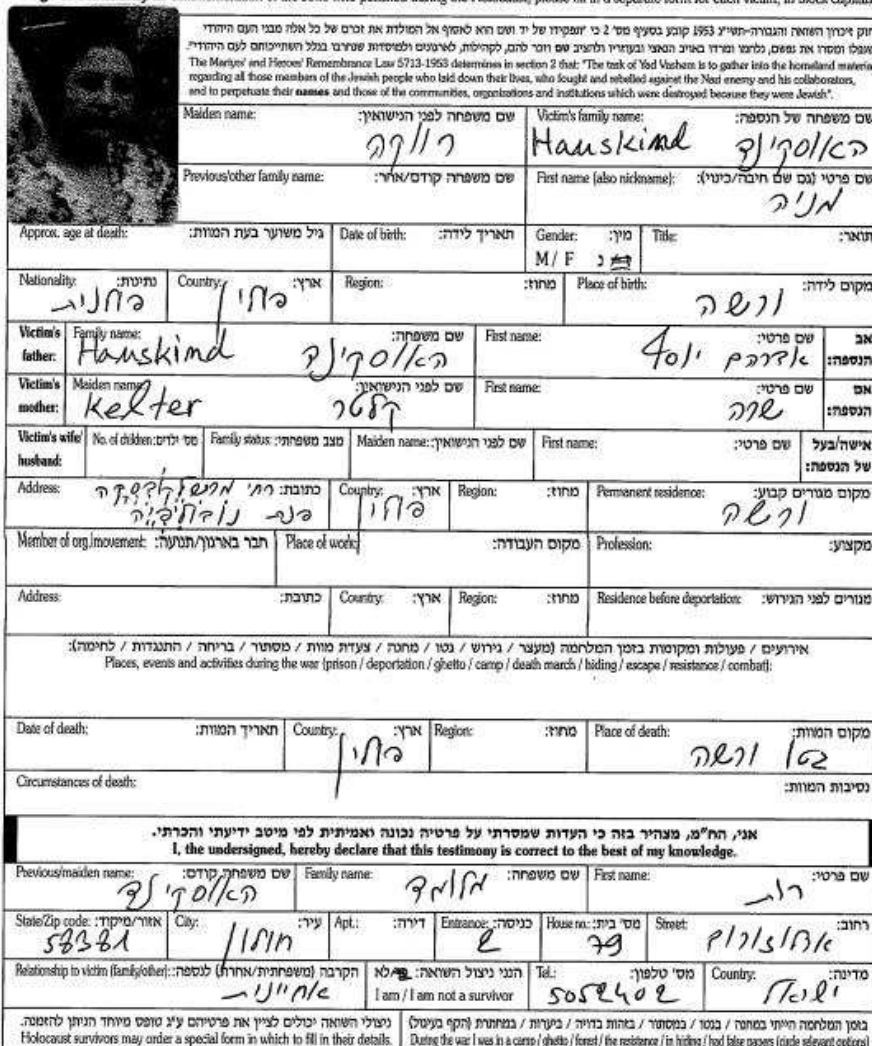 חוק זיכרון השואה והגבורה-תשי"ג 1953 קובע בסעיף מס' 2 כי "תפקידו של יד ושם הוא לאסוף אל המולדת את זכרם של כל אלה מבני העם היהודי
שנפלו ומסרו את נפשם, נלחמו ומרדו באויב הנאצי ובעוזריו ולהציב שם וזכר להם, לקהילות, לארגונים ולמוסדות שנחרבו בגלל השתייכותם לעם היהודי".
The Martyrs' and Heroes' Remembrance Law 5713-1953 determines in section 2 that: "The task of Yad Vashem is to gather into the homeland material
regarding all those members of the Jewish people who laid down their lives, who fought and rebelled against the Nazi enemy and his collaborators,
and to perpetuate their names and those of the communities, organizations and institutions which were destroyed because they were Jewish".
Maiden name: שם משפחה לפני הנישואין: Victim's family name: שם משפחה של הנספה:
רווקה Hauskind האוסקינד
Previous/other family name: שם משפחה קודם/אחר: First name (also nickname): שם פרטי (גם שם חיבה/כינוי):
מניה
Approx. age at death: גיל משוער בעת המוות: Date of birth: תאריך לידה: Gender: מין: Title: תואר:
M / F נ
Nationality: נתינות: Country: ארץ: Region: מחוז: Place of birth: מקום לידה:
פולנית פולין ורשה
Victim's father: Family name: שם משפחה: First name: שם פרטי: אב הנספה:
Hauskind האוסקינד אברהם יוסף
Victim's mother: Maiden name: שם לפני הנישואין: First name: שם פרטי: אם הנספה:
Kelter קלטר שרה
Victim's wife/husband: No. of children: מס' ילדים: Family status: מצב משפחתי: Maiden name: שם לפני הנישואין: First name: שם פרטי: אישה/בעל של הנספה:
Address: כתובת: Country: ארץ: Region: מחוז: Permanent residence: מקום מגורים קבוע:
רח' פולין ורשה
פנת
Member of org./movement: חבר בארגון/תנועה: Place of work: מקום העבודה: Profession: מקצוע:
Address: כתובת: Country: ארץ: Region: מחוז: Residence before deportation: מגורים לפני הגירוש:
אירועים / פעולות ומקומות בזמן המלחמה (מעצר / גירוש / גטו / מחנה / צעדת מוות / מסתור / בריחה / התנגדות / לחימה):
Places, events and activities during the war (prison / deportation / ghetto / camp / death march / hiding / escape / resistance / combat):
Date of death: תאריך המוות: Country: ארץ: Region: מחוז: Place of death: מקום המוות:
פולין גטו ורשה
Circumstances of death: נסיבות המוות:
אני, הח"מ, מצהיר בזה כי העדות שמסרתי על פרטיה נכונה ואמיתית לפי מיטב ידיעתי והכרתי.
I, the undersigned, hereby declare that this testimony is correct to the best of my knowledge.
Previous/maiden name: שם משפחה קודם: Family name: שם משפחה: First name: שם פרטי:
האוסקינד מלומד רות
State/Zip code: אזור/מיקוד: City: עיר: Apt.: דירה: Entrance: כניסה: House no.: מס' בית: Street: רחוב:
58381 חולון 2 79 ארלוזורוב
Relationship to victim (family/other): הקרבה (משפחתית/אחרת) לנספה: הנני ניצול השואה: לא Tel.: מס' טלפון: Country: מדינה:
אחיינית I am / I am not a survivor 5052402 ישראל
ניצולי השואה יכולים לציין את פרטיהם ע"ג טופס מיוחד הניתן להזמנה. בזמן המלחמה הייתי במחנה / בגטו / במסתור / בזהות בדויה / ביערות / במחתרת (הקף בעיגול)
Holocaust survivors may order a special form in which to fill in their details. During the war I was in a camp / ghetto / forest / the resistance / in hiding / had false papers (circle relevant options)